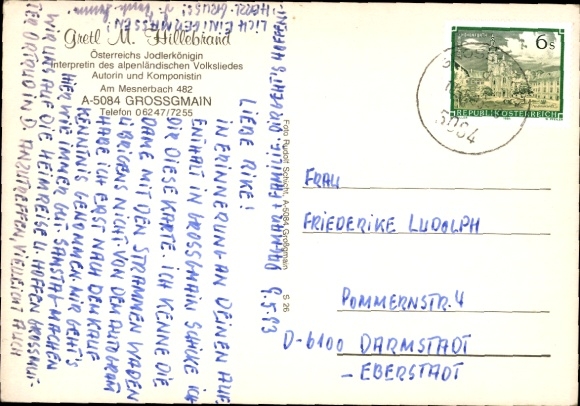 Gretl M. Hillebrand
Österreichs Jodlerkönigin
Interpretin des alpenländischen Volksliedes
Autorin und Komponistin
Am Mesnerbach 482
A-5084 GROSSGMAIN
Telefon 06247/7255
9.5.93
LIEBE RIKE!
IN ERINNERUNG AN DEINEN AUF-
ENTHALT IN GROSSGMAIN SCHICKE ICH
DIR DIESE KARTE. ICH KENNE DIE
DAME MIT DEN STRAMMEN WADEN
ÜBRIGENS NICHT. VON DEM AUTOGRAM
HABE ICH ERST NACH DEM KAUF
KENNTNIS GENOMMEN. MIR GEHT'S
HIER WIE IMMER GUT. SAMSTAG MACHEN
WIR UNS AUF DIE HEIMREISE U. HOFFEN GROSSMUT-
TER ORTRUD IN D. ANZUTREFFEN, VIELLEICHT AUCH
LICH EINIGERMASSEN!
HERZL. GRUSS!
Foto Rudolf Schicht, A-5084 Großgmain
S 26
6 S
REPUBLIK ÖSTERREICH
5084
FRAU
FRIEDERIKE LUDOLPH
POMMERNSTR. 4
D-6100 DARMSTADT
- EBERSTADT